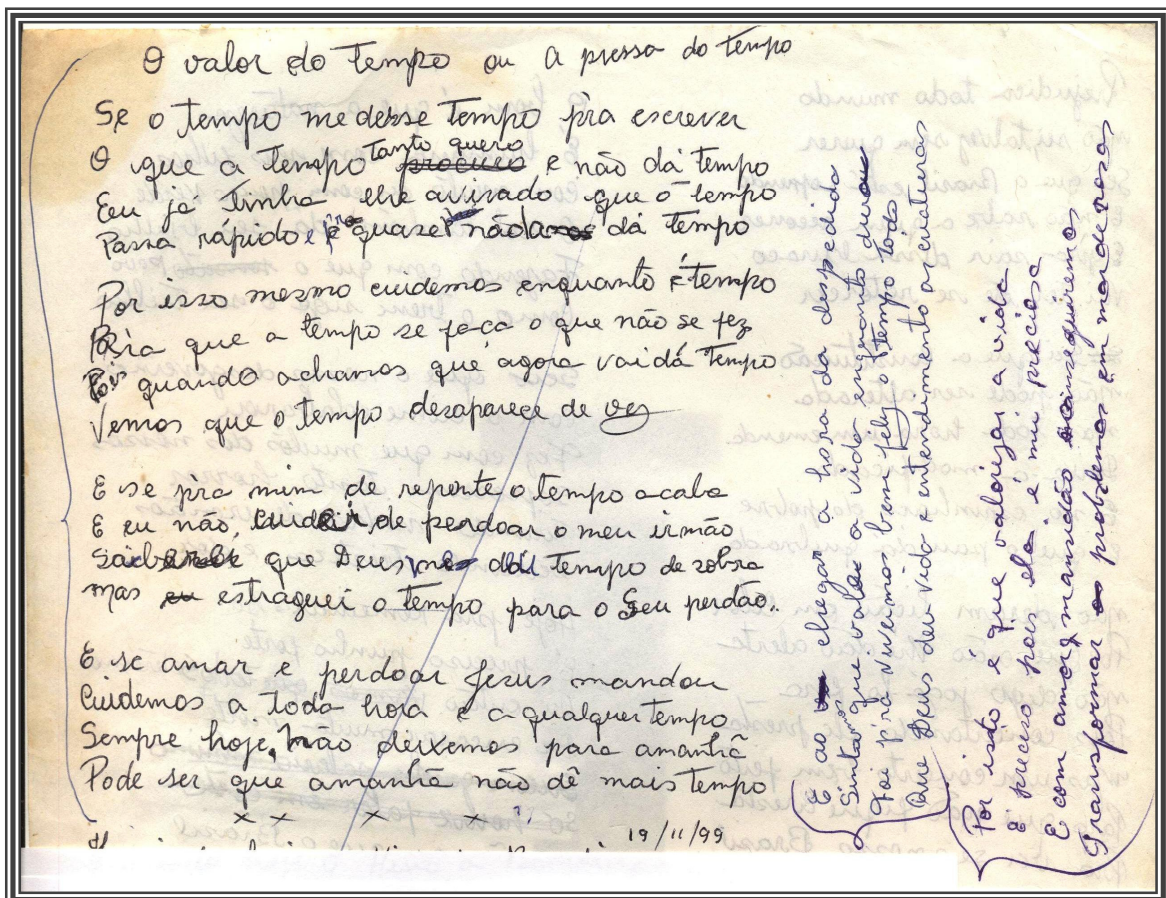 O valor do Tempo ou A pressa do Tempo
Se o tempo me desse tempo pra escrever
O que a tempo tanto quero e não dá tempo
Eu já tinha lhe avisado que o tempo
Passa rápido e quase não dá tempo
Por isso mesmo cuidemos enquanto é tempo
Pra que a tempo se faça o que não se fez
Pois quando achamos que agora vai dá tempo
Vemos que o tempo desaparece de vez
E se pra mim de repente o tempo acaba
E eu não cuidei de perdoar o meu irmão
que Deus dá tempo de sobra
mas estraguei o tempo para o Seu perdão..
E se amar e perdoar Jesus mandou
Cuidemos a toda hora e a qualquer tempo
Sempre hoje, não deixemos para amanhã
Pode ser que amanhã não dê mais tempo
x x x x
19/11/99
E ao chegar a hora da despedida
que a vida enquanto dura
bem feliz o tempo todo
Que Deus deu vida e entendimento a criatura
Por isto é que valorizar a vida
É preciso pois ela é mui preciosa
E com amor, mansidão
Transformar os problemas em manderosa